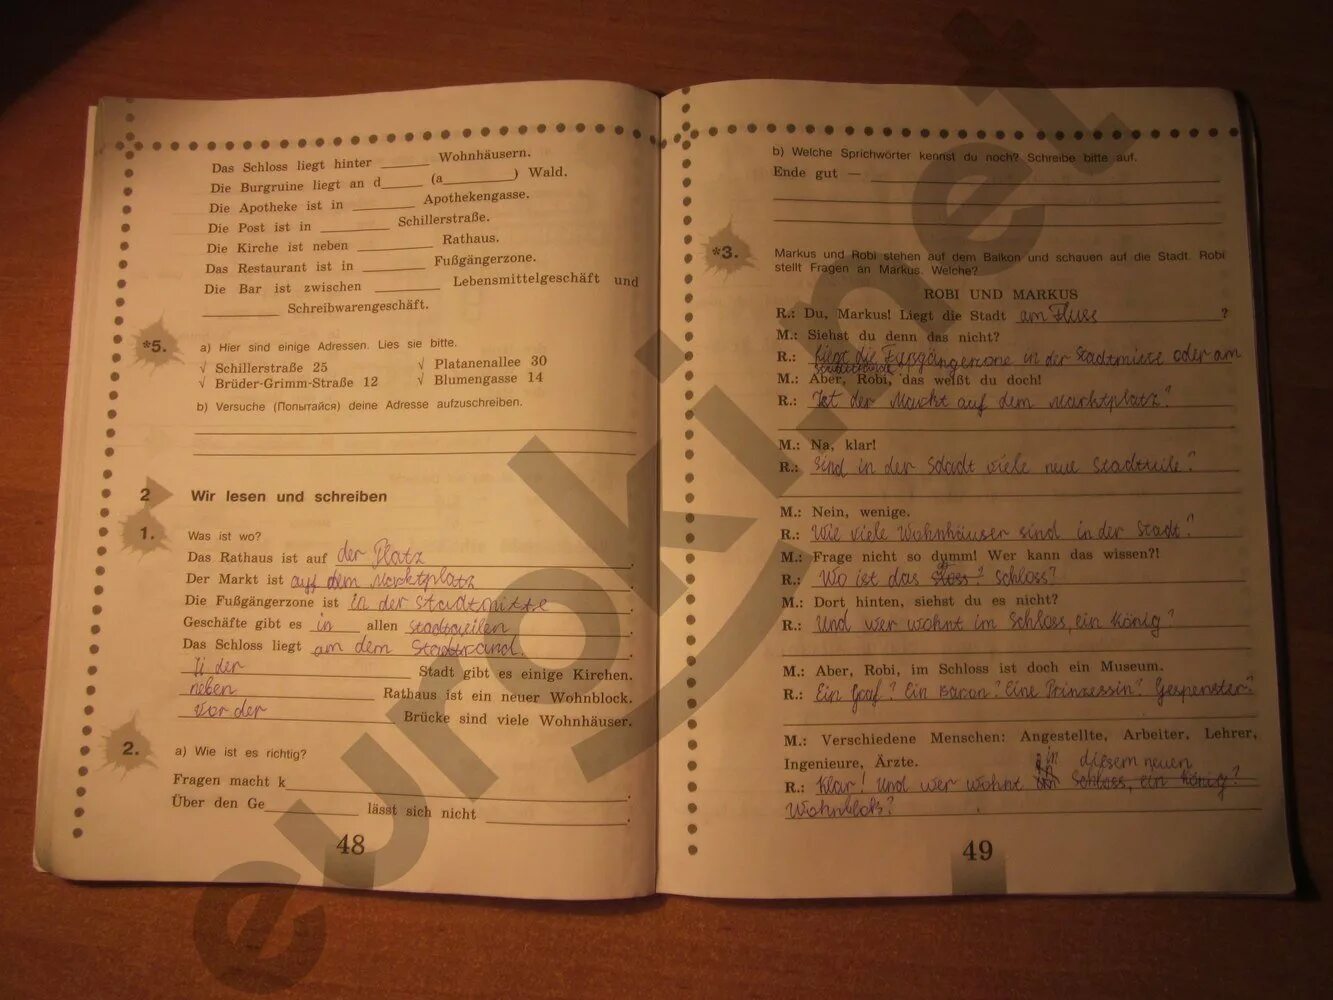 Das Schloss liegt hinter ______ Wohnhäusern.
Die Burgruine liegt an d_____ (a_________) Wald.
Die Apotheke ist in ________ Apothekengasse.
Die Post ist in _________ Schillerstraße.
Die Kirche ist neben __________ Rathaus.
Das Restaurant ist in ________ Fußgängerzone.
Die Bar ist zwischen ________ Lebensmittelgeschäft und
__________ Schreibwarengeschäft.
*5.
a) Hier sind einige Adressen. Lies sie bitte.
√ Schillerstraße 25 √ Platanenallee 30
√ Brüder-Grimm-Straße 12 √ Blumengasse 14
b) Versuche (Попытайся) deine Adresse aufzuschreiben.
2 Wir lesen und schreiben
1.
Was ist wo?
Das Rathaus ist auf der Platz.
Der Markt ist auf dem Marktplatz.
Die Fußgängerzone ist in der Stadtmitte.
Geschäfte gibt es in allen Stadtteilen.
Das Schloss liegt am dem Stadtrand.
der Stadt gibt es einige Kirchen.
neben Rathaus ist ein neuer Wohnblock.
Vor der Brücke sind viele Wohnhäuser.
2.
a) Wie ist es richtig?
Fragen macht k______________________.
Über den Ge__________ lässt sich nicht ______________.
48
b) Welche Sprichwörter kennst du noch? Schreibe bitte auf.
Ende gut — ______________________
*3.
Markus und Robi stehen auf dem Balkon und schauen auf die Stadt. Robi
stellt Fragen an Markus. Welche?
ROBI UND MARKUS
R.: Du, Markus! Liegt die Stadt am Fluss ?
M.: Siehst du denn das nicht?
R.: Liegt die Fussgängerzone in der Stadtmitte oder am
M.: Aber, Robi, das weißt du doch!
R.: Ist der Markt auf dem Marktplatz?
M.: Na, klar!
R.: Sind in der Stadt viele neue Stadtteile?
M.: Nein, wenige.
R.: Wie viele Wohnhäuser sind in der Stadt?
M.: Frage nicht so dumm! Wer kann das wissen?!
R.: Wo ist das Schloss?
M.: Dort hinten, siehst du es nicht?
R.: Und wer wohnt im Schloss, ein König?
M.: Aber, Robi, im Schloss ist doch ein Museum.
R.: Ein Graf? Ein Baron? Eine Prinzessin? Gespenster?
M.: Verschiedene Menschen: Angestellte, Arbeiter, Lehrer,
Ingenieure, Ärzte.
in diesem neuen
R.: Klar! Und wer wohnt im Schloss, ein König?
49
euroki.net